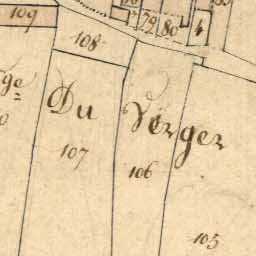 109
79
80
4
108
ge
Du Verger
107
106
105